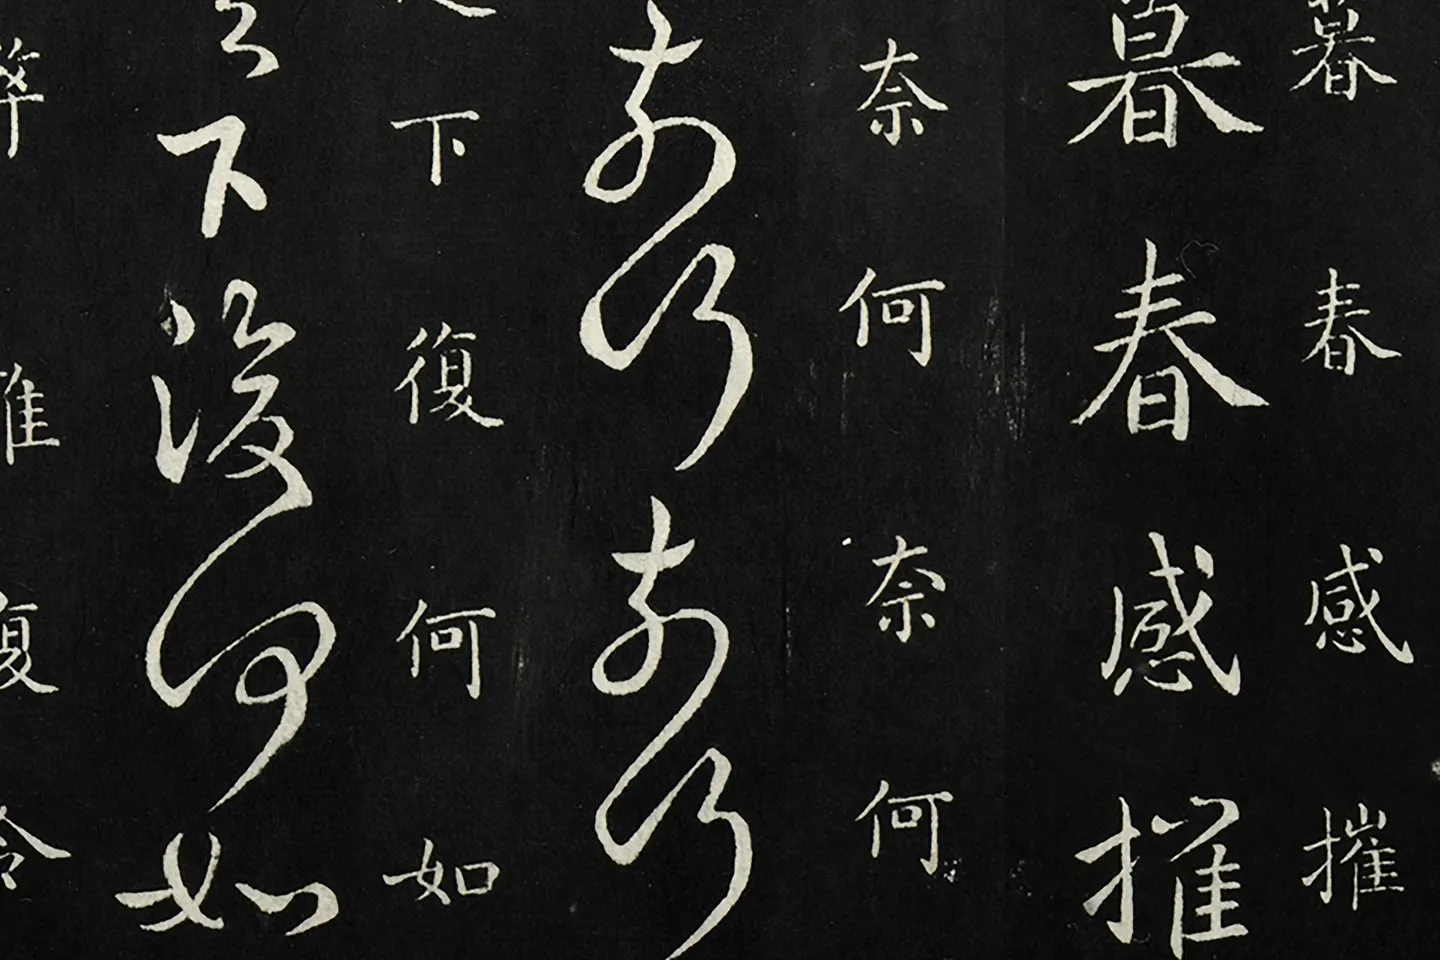 暮春感摧
暮春感摧
奈何奈何
奈何奈何
下復何如
下復何如